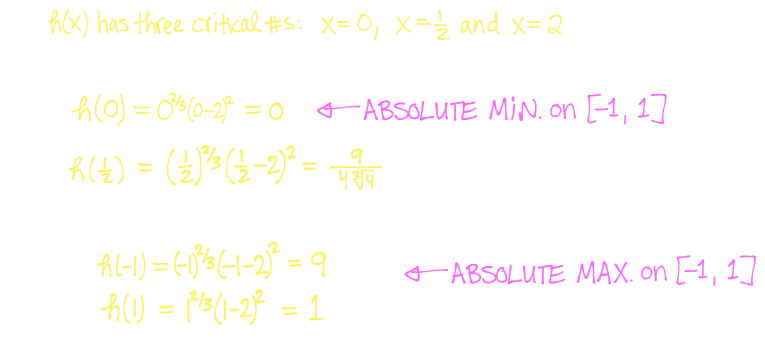 h(x) has three critical #s: x=0, x=1/2 and x=2
h(0) = 0^(2/3)(0-2)^2 = 0 ← ABSOLUTE MIN. on [-1, 1]
h(1/2) = (1/2)^(2/3)(1/2-2)^2 = 9/(4∛4)
h(-1) = (-1)^(2/3)(-1-2)^2 = 9 ← ABSOLUTE MAX. on [-1, 1]
h(1) = 1^(2/3)(1-2)^2 = 1